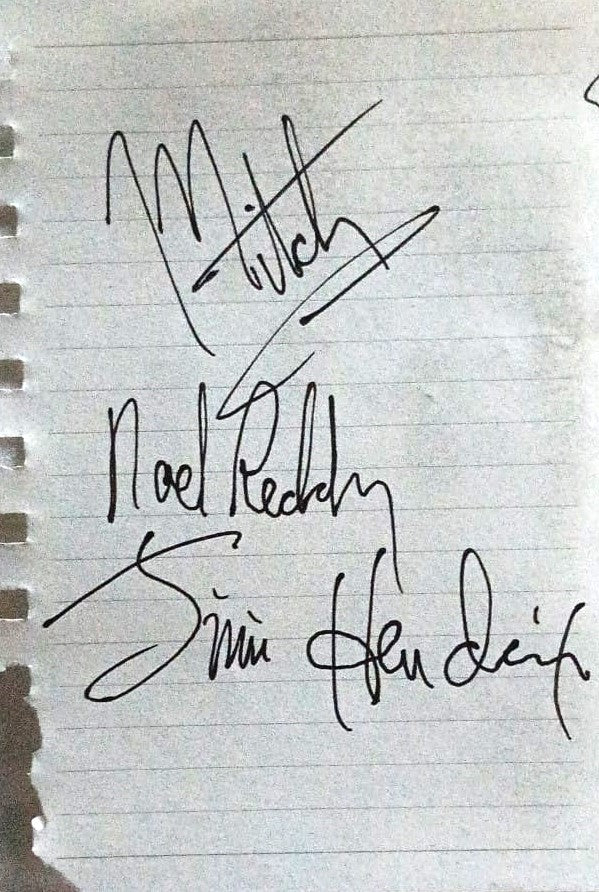 Mitch
Noel Reddy
Jimi Hendrix